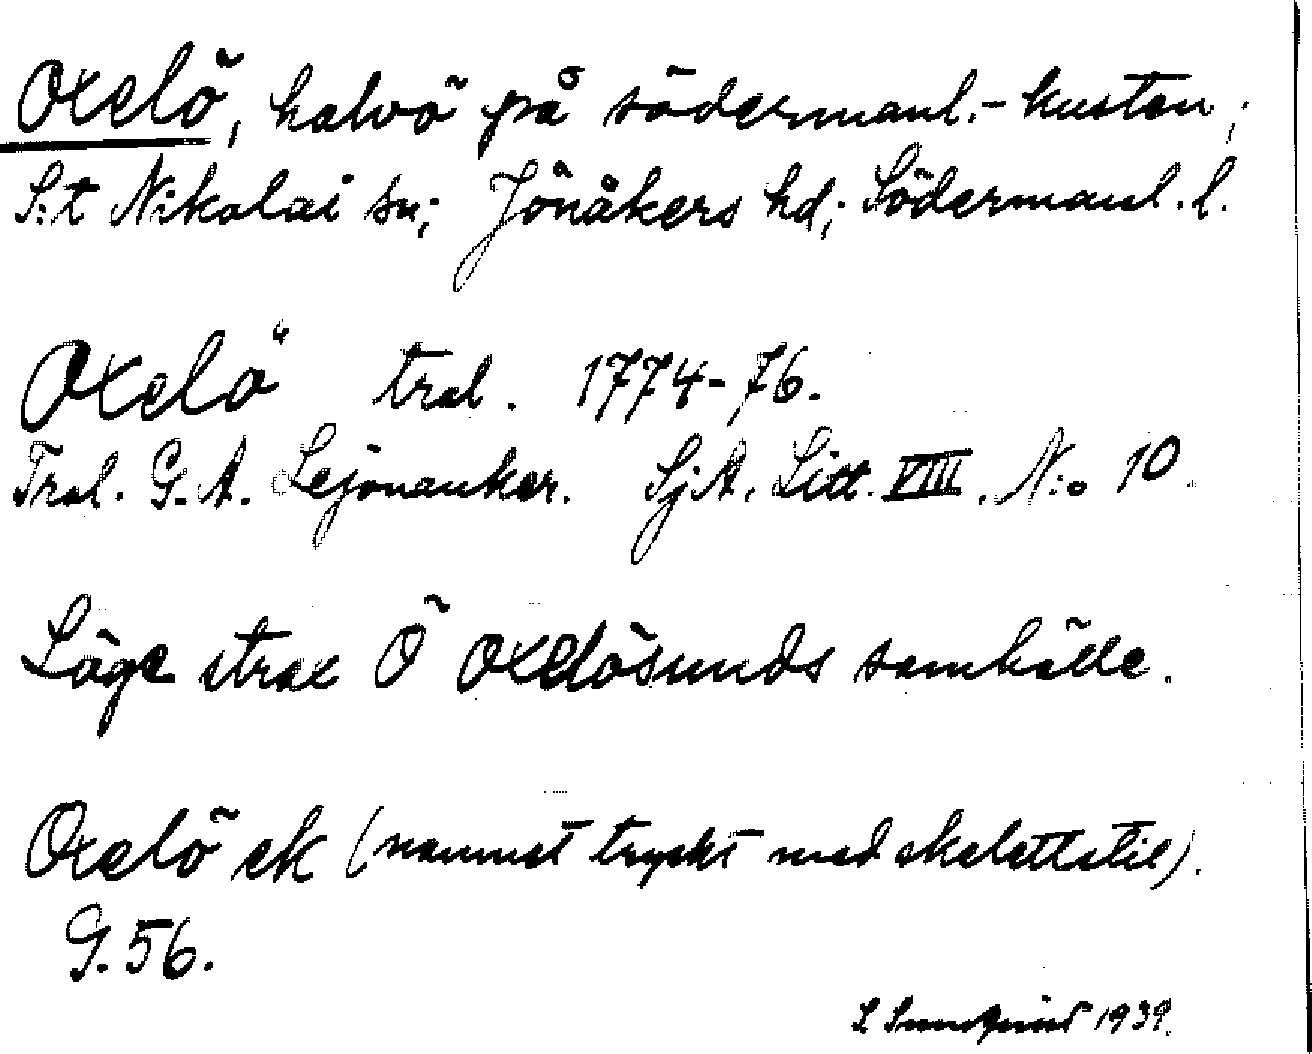 Oxelö, halvö på södermanl.-kusten;
S:t Nikolai sn; Jönåkers hd; Södermanl. l.
Oxelö trol. 1774-76.
Trol. G. A. Lejonanker. SjA. Litt. VIII. N:o 10.
Läge strax Ö Oxelösunds samhälle.
Oxelö ek (namnet tryckt med skelettstil).
G. 56.
L Sundqvist 1939.